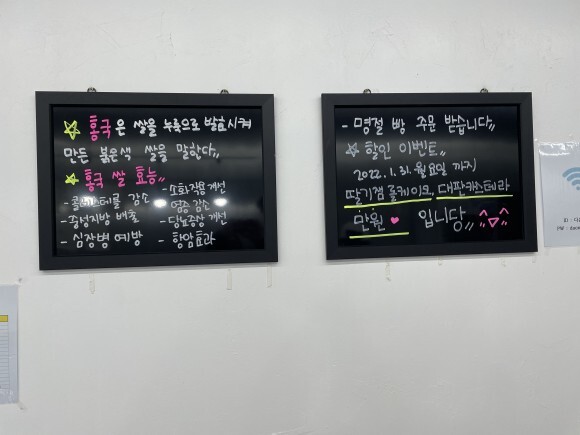 ☆ 홍국은 쌀을 누룩으로 발효시켜
만든 붉은색 쌀을 말한다.,,
☆ 홍국 쌀 효능
- 콜레스테롤 감소
- 중성지방 배출
- 심장병 예방
- 소화작용 개선
- 염증 감소
- 당뇨증상 개선
- 항암효과
- 명절 빵 주문 받습니다,,
☆ 할인 이벤트
2022. 1. 31. 월요일 까지
딸기잼 롤케이크, 대판카스테라
만원 ♥ 입니당,, ^▽^